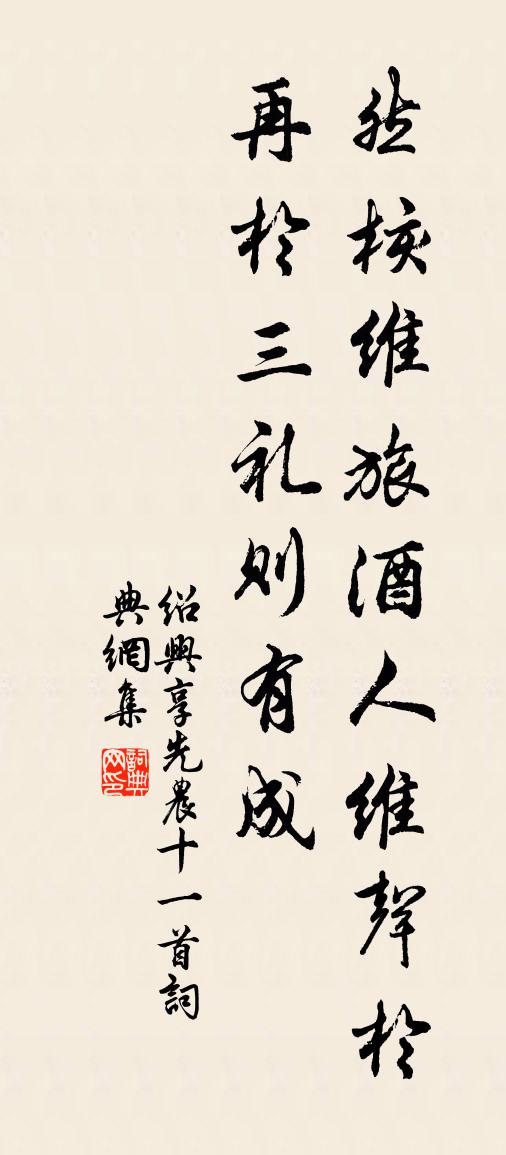 核維旅酒人維聲於
再於三礼则有成
紹興享先農十一首詞
典網集
詞典网印